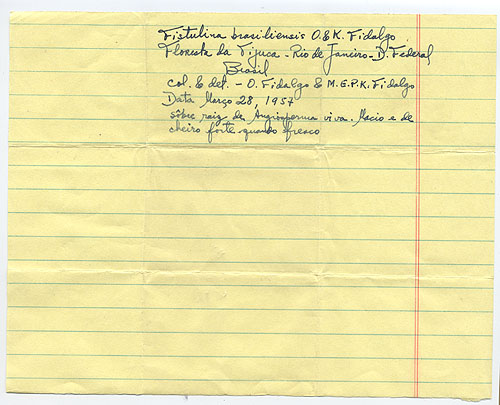 Fistulina brasiliensis O. & K. Fidalgo
Floresta da Tijuca - Rio de Janeiro - D. Federal
Brasil
col. & det. - O. Fidalgo & M.E.P.K. Fidalgo
Data Março 28, 1957
sôbre raiz de Angiosperma viva. Macio e de
cheiro forte quando fresco